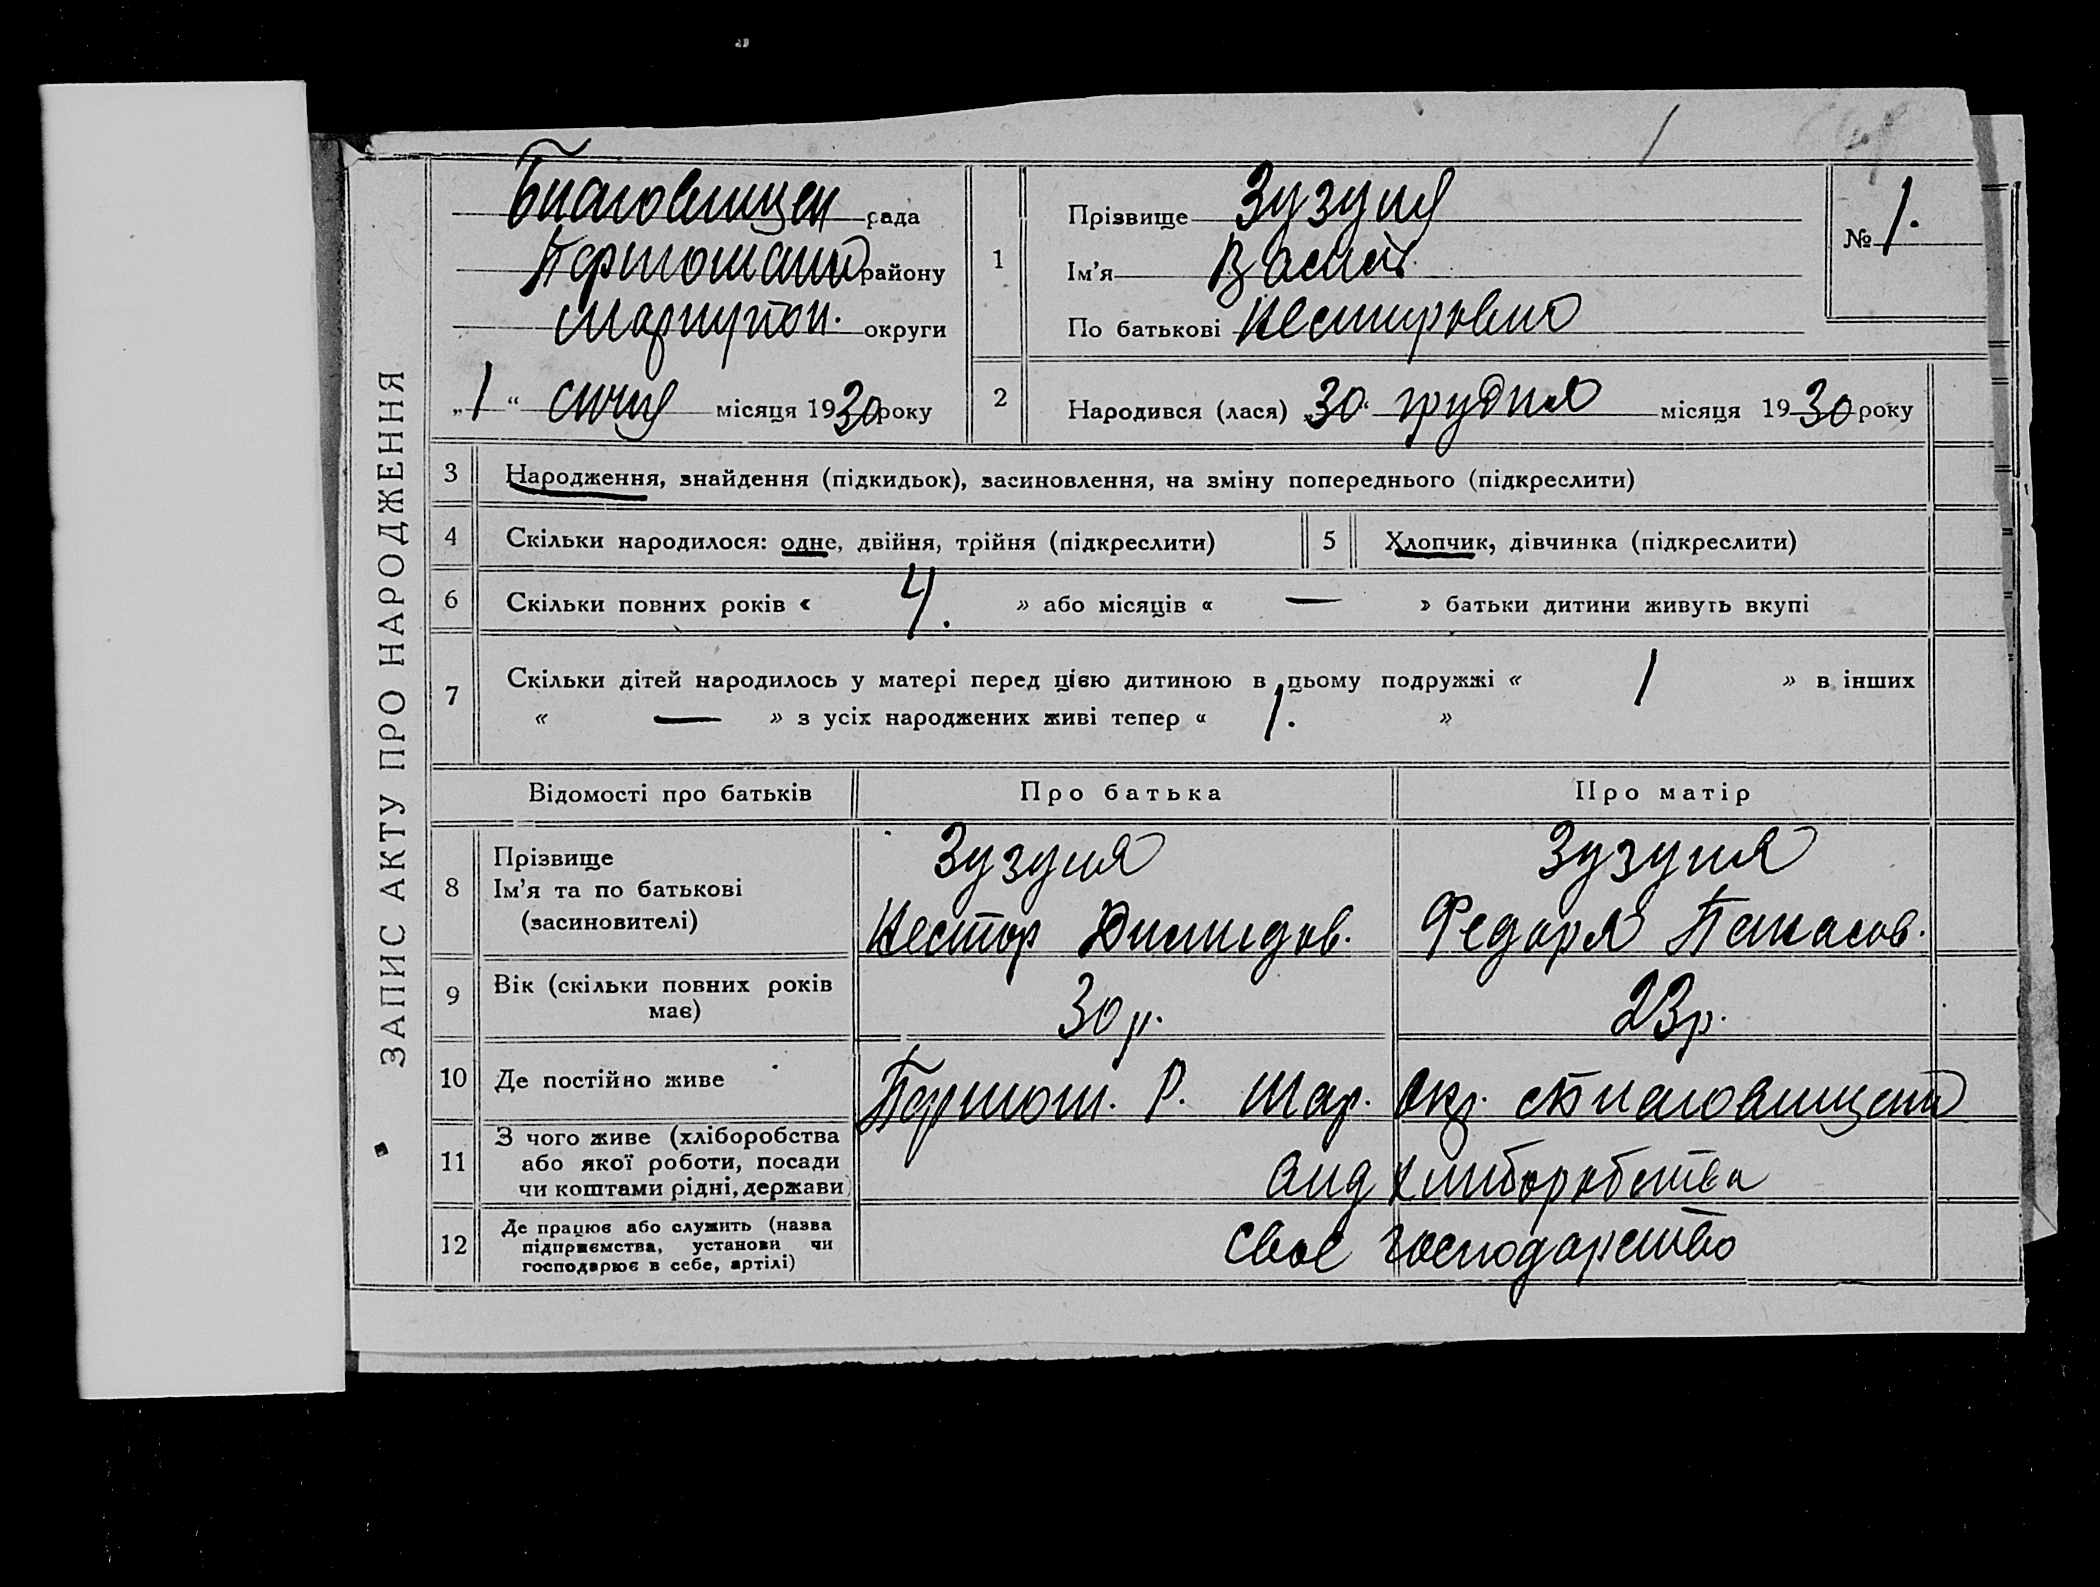 ЗАПИС АКТУ ПРО НАРОДЖЕННЯ
Благовищен рада
района
округи
„1“ січня місяця 1930 року
1
Прізвище Зузуля
Ім’я Васил
По батькові Нестирович
№ 1.
1
2
Народився (лася) „30“ грудня місяця 1930 року
3 Народження, знайдення (підкидьок), засиновлення, на зміну попереднього (підкреслити)
4 Скільки народилося: одне, двійня, трійня (підкреслити)
5 Хлопчик, дівчинка (підкреслити)
6 Скільки повних років « 4. » або місяців « — » батьки дитини живуть вкупі
7 Скільки дітей народилось у матері перед цією дитиною в цьому подружжі « 1 » в інших
« — » з усіх народжених живі тепер « 1. »
Відомості про батьків
Про батька
Про матір
8 Прізвище
Ім’я та по батькові
(засиновителі)
Зузуля
Нестор
Зузуля
Федора Панасов.
9 Вік (скільки повних років
має)
30 р.
23 р.
10 Де постійно живе
Р. Мар. Окр.
11 З чого живе (хліборобства
або якої роботи, посади
чи коштами рідні, держави)
від хлиборобства
12 Де працює або служить (назва
підприємства, установи чи
господарює в себе, артілі)
своє господарство